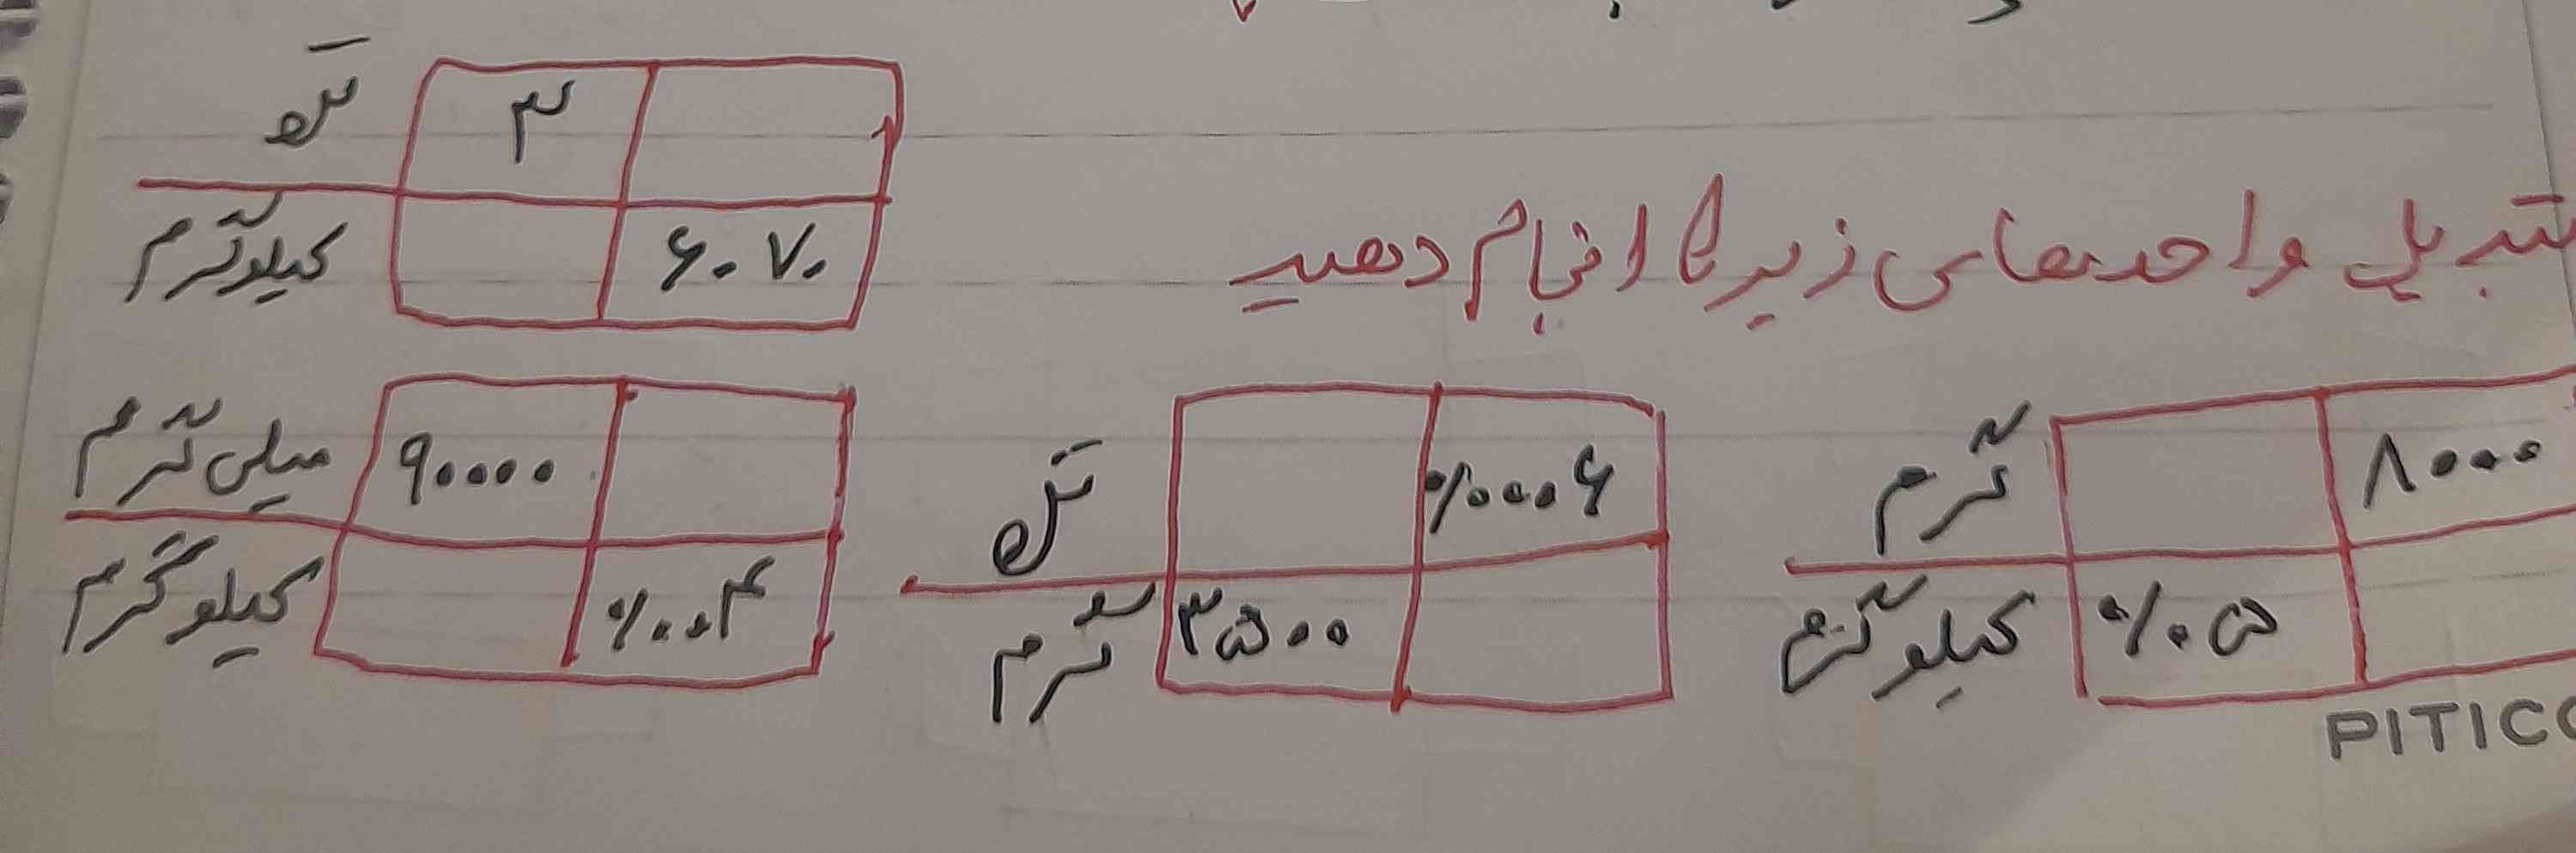 تبدیل واحدهای زیر را انجام دهید
تن ۳
کیلوگرم ۶۰۷۰
گرم ۸۰۰۰
کیلوگرم ۰/۰۵
تن ۰/۰۰۰۶
گرم ۳۵۰۰
میلی گرم ۹۰۰۰۰
کیلوگرم ۰/۰۰۴